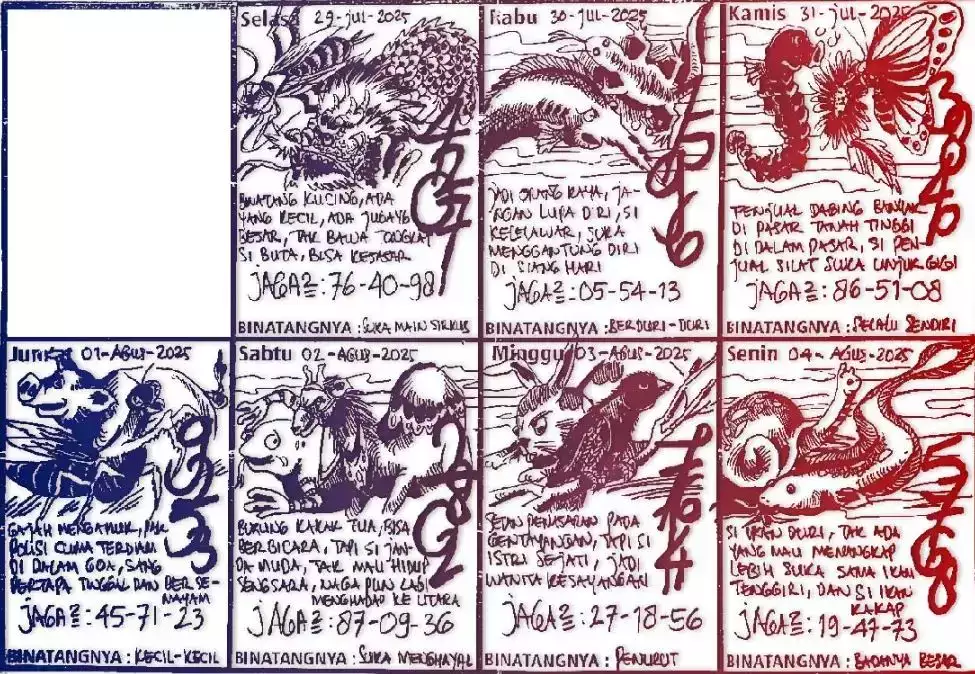 Selasa 29-Jul-2025
4
2
0
7
BINATANG KUCING, ADA
YANG KECIL, ADA JUGA YG
BESAR, TAK BAWA TONGKAT
SI BUTA, BISA KESASAR
JAGA2 : 76-40-98
BINATANGNYA : SUKA MAIN SIRKUS
Rabu 30-Jul-2025
6
JADI ORANG KAYA, JA-
NGAN LUPA DIRI, SI
KELELAWAR, SUKA
MENGGANTUNG DIRI
DI SIANG HARI
JAGA2 : 05-54-13
BINATANGNYA : BERDURI-DURI
Kamis 31-Jul-2025
PENJUAL DAGING BANYAK
DI PASAR TANAH TINGGI
DI DALAM PASAR, SI PEN-
JUAL SILAT SUKA UNJUK GIGI
JAGA2 : 86-51-08
BINATANGNYA : SELALU SENDIRI
Jumat 01-AGUS-2025
9
2
3
GAJAH MENGAMUK, PAK
POLISI CUMA TERDIAM
DI DALAM GOA, SANG
PERTAPA TINGGAL DAN BERSE-
MAYAM
JAGA2 : 45-71-23
BINATANGNYA : KECIL-KECIL
Sabtu 02-AGUS-2025
2
8
0
2
BURUNG KAKAK TUA, BISA
BERBICARA, TAPI SI JAN-
DA MUDA, TAK MAU HIDUP
SENGSARA, NAGA PUN LAGI
MENGHADAP KE UTARA
JAGA2 : 87-09-36
BINATANGNYA : SUKA MENGHAYAL
Minggu 03-AGUS-2025
4
SETAN PENASARAN PADA
GENTAYANGAN, TAPI SI
ISTRI SEJATI, JADI
WANITA KESAYANGAN
JAGA2 : 27-18-56
BINATANGNYA : PENURUT
Senin 04-AGUS-2025
5
7
6
8
SI IKAN DURI, TAK ADA
YANG MAU MENANGKAP
LEBIH SUKA SAMA IKAN
TENGGIRI, DAN SI IKAN
KAKAP
JAGA2 : 19-47-73
BINATANGNYA : BADANYA BESAR